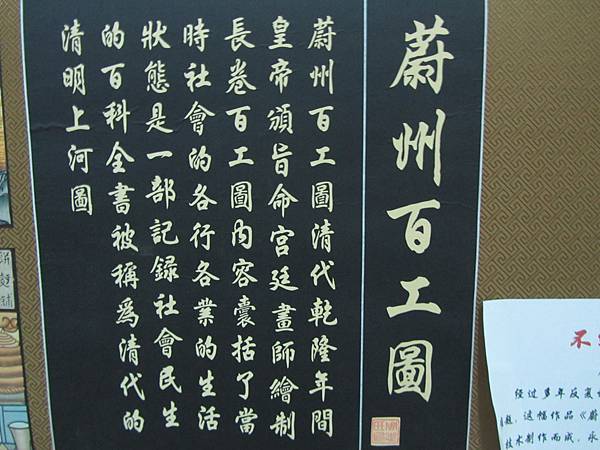 蔚州百工圖
蔚州百工圖清代乾隆年間
皇帝頒旨命宫廷畫師繪制
長卷百工圖内容囊括了當
時社會的各行各業的生活
狀態是一部記録社會民生
的百科全書被稱爲清代的
清明上河圖
不
经过多年反复
这幅作品《蔚
技术制作而成，永